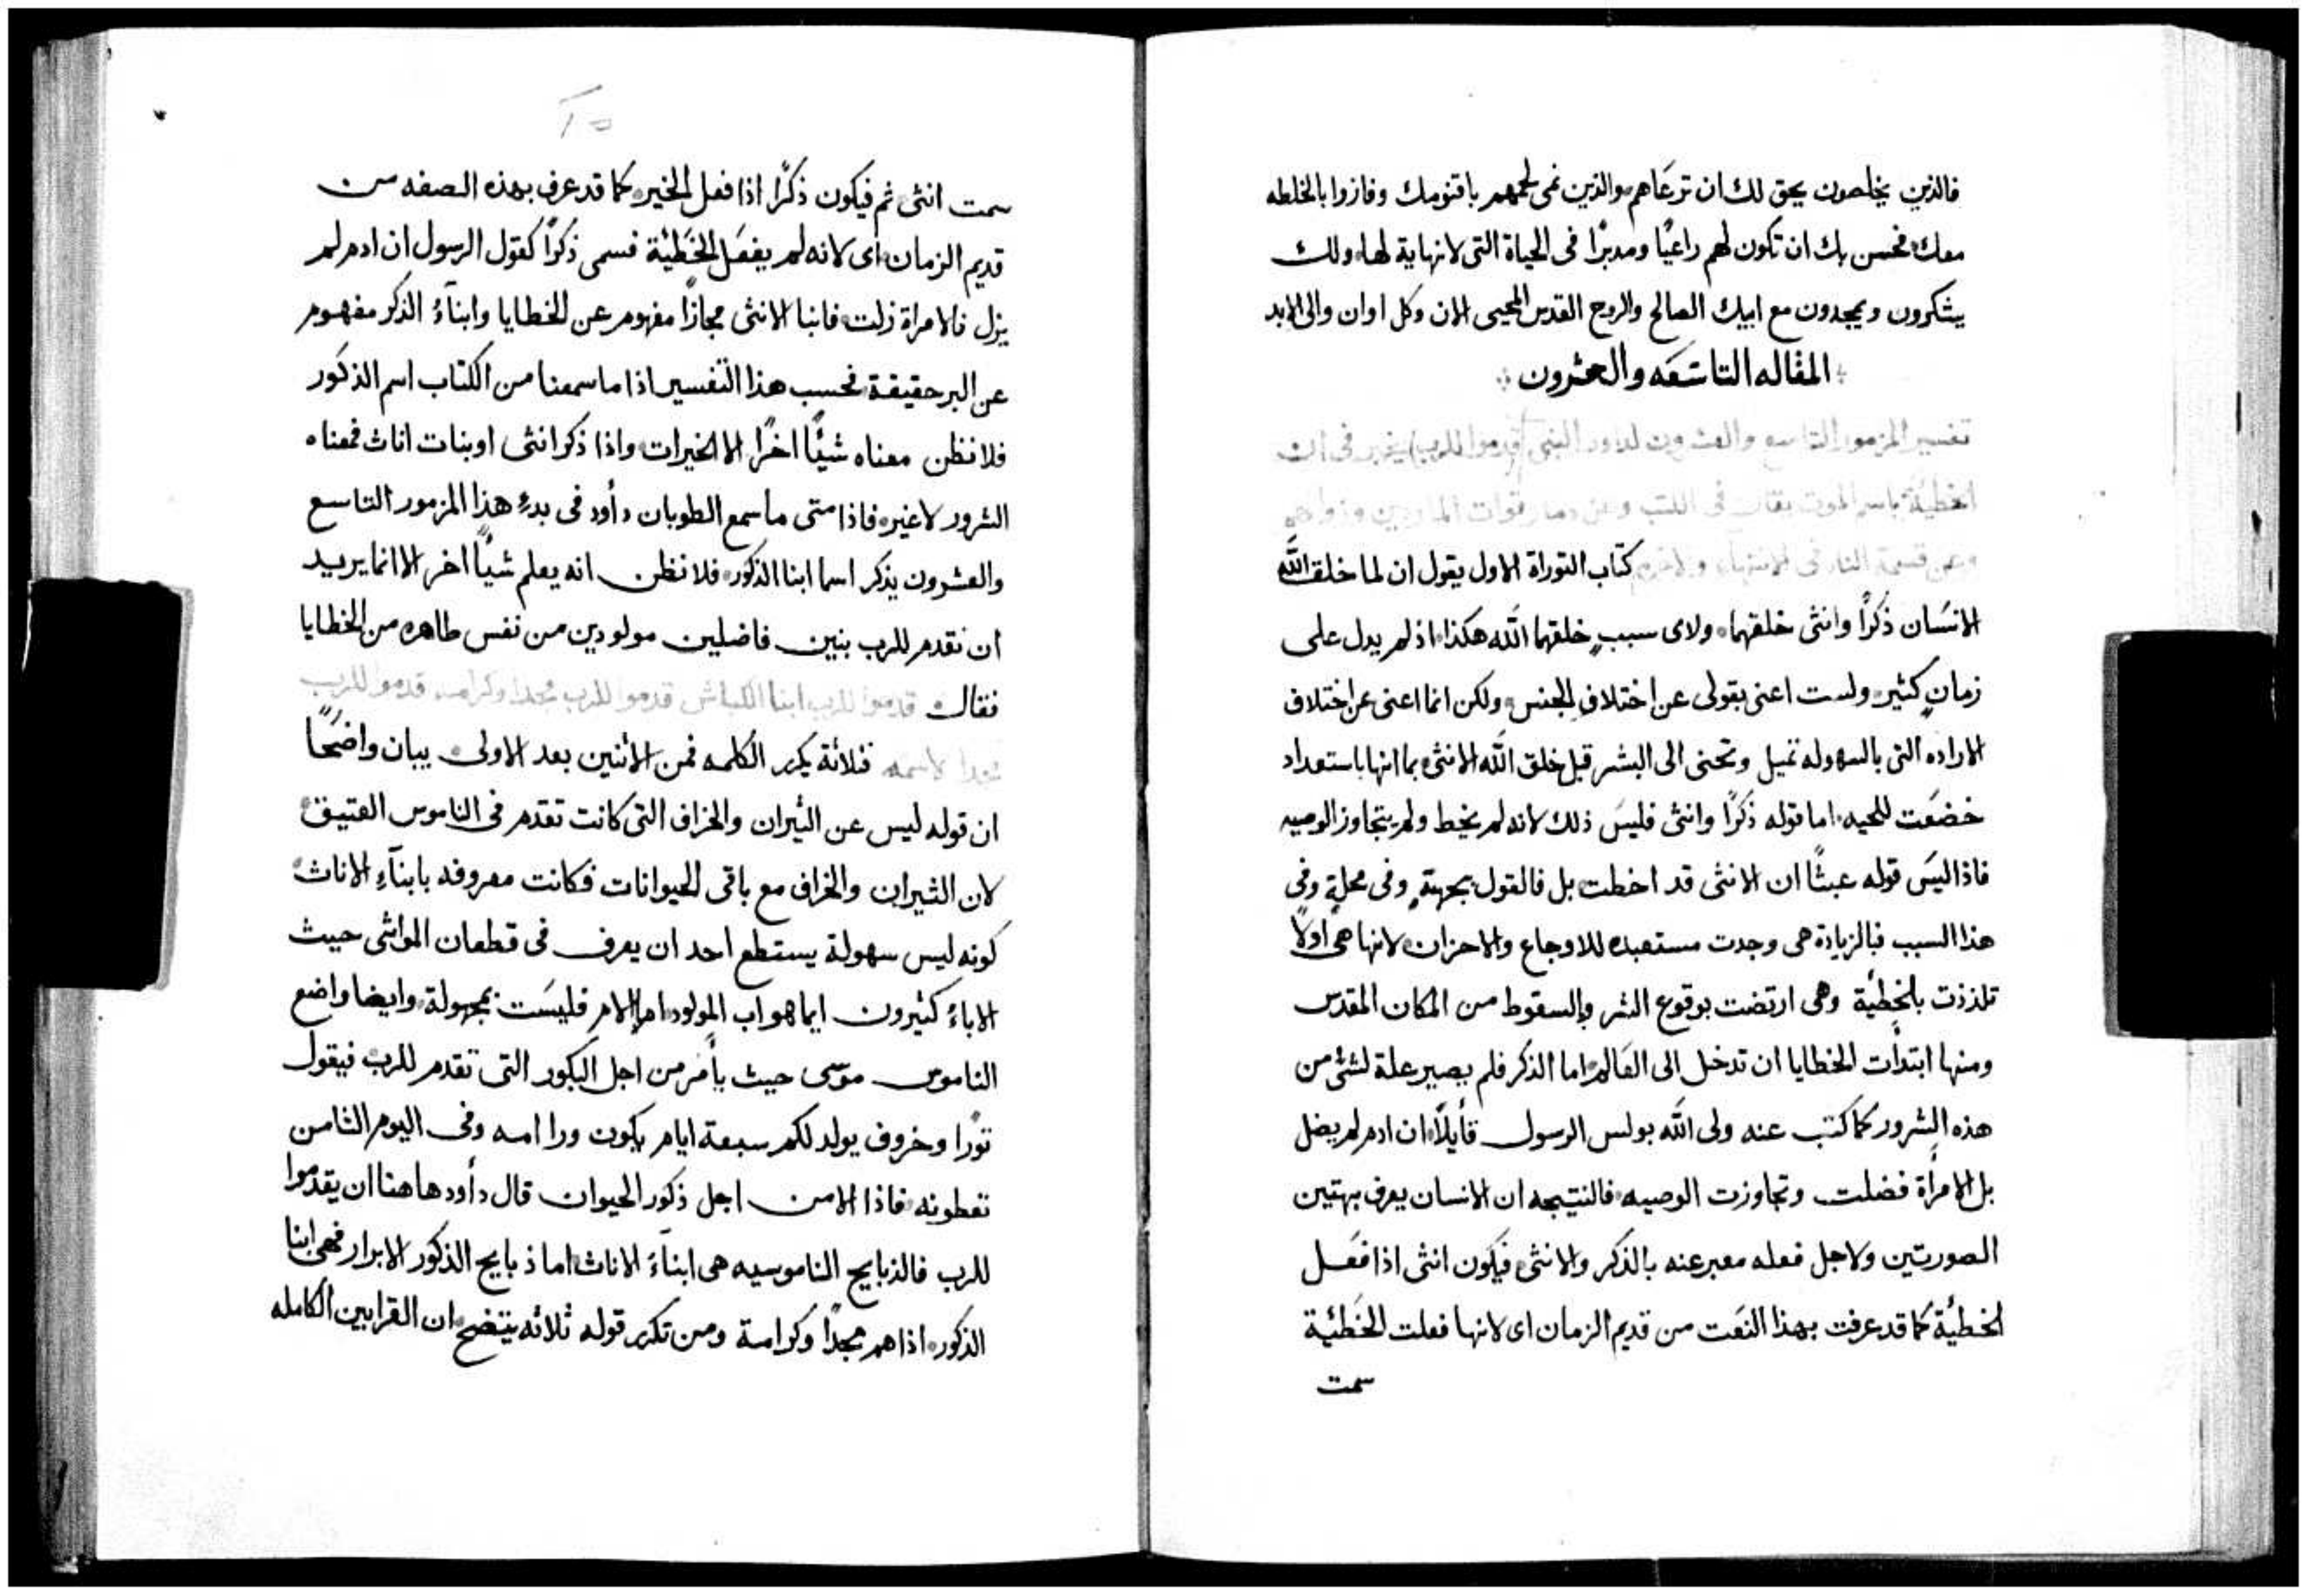 فالذين يخلصون يحق لك ان ترعاهم والذين نمى لحمهم باقنومك وفازوا بالخلطه
معك فحسن بك ان تكون لهم راعيًا ومدبرًا فى الحياة التى لانهاية لها ولك
يشكرون ويمجدون مع ابيك الصالح والروح القدس المحيى الان وكل اوان والى الابد
المقاله التاسَعَه والعشرون
تفسير المزمور التاسع والعشرون لداود النبى قدموا للرب يخبر فى ان
الخطيَّة باسم الموت يقال فى الكتب وعن دمار قوات
وعن قسمة النار فى الانتهاء كتاب التوراة الاول يقول ان لما خلق الله
الانسَان ذكرًا وانثى خلقهما ولاى سببٍ خلقهما الله هكذا اذ لم يدل على
زمانٍ كثير ولست اعنى بقولى عن اختلافِ الجنس ولكن انما اعنى عن اختلاف
الاراده التى بالسهوله تميل وتحنى الى البشر قبل خلق الله الانثى بما انها باستعداد
خضعَت للحيه اما قوله ذكرًا وانثى فليسَ ذلك لانه لم يخط ولم يتجاوز الوصيه
فاذا ليسَ قوله عبثًا ان الانثى قد اخطت بل فالقول بجهةٍ وفى محلةٍ وفى
هذا السبب فبالزيادة هى وجدت مستعبده للاوجاع والاحزان لانها هى اولاً
تلذذت بالخطيَّة وهى ارتضت بوقوع الشر وبالسقوط من المكان المقدس
ومنها ابتدأت الخطايا ان تدخل الى العَالم اما الذكر فلم يصير علة لشئ من
هذه الشرور كما كتب عنه ولى الله بولس الرسول قايلاً ان ادم لم يضل
بل الامرأة فضلت وتجاوزت الوصيه فالنتيجه ان الانسان يعرف بهتين
الصورتين ولاجل فعله معبر عنه بالذكر والانثى فيكون انثى اذا فعَل
الخطيَّة كما قد عرفت بهذا النعَت من قديم الزمان اى لانها فعلت الخَطئية
سمت
٢٥
سمت انثى ثم فيكون ذكرًا اذا فعل الخير كما قد عرف بهذه الصفه من
قديم الزمان اى لانه لم يفعَل الخَطئية فسمى ذكرًا كقول الرسول ان ادم لم
يزل فالامراة زلت فابنا الانثى مجازًا مفهوم عن الخطايا وابنآءُ الذكر مفهوم
عن البر حقيقة فحسب هذا التفسير اذا ما سمعنا من الكتاب اسم الذكور
فلا نظن معناه شيًّا اخرًا الا الخيرات واذا ذكر انثى او بنات اناث فمعناه
الشرور لا غير فاذا متى ما سمع الطوبان دأود فى بدءِ هذا المزمور التاسع
والعشرون يذكر اسما ابنا الذكور فلا نظن انه يعلم شيًّا اخر الا انما يريد
ان نقدم للرب بنين فاضلين مولودين من نفس طاهره من الخطايا
فقال قدموا للرب ابنا الكباش قدموا للرب مجدا وكرامه قدموا للرب
مجدا لاسمه فثلاثة يكرر الكلمه فمن الاثنين بعد الاولى يبان واضحًا
ان قوله ليس عن الثيران والخراف التى كانت تقدم فى الناموس العتيق
لان الثيران والخراف مع باقى الحيوانات فكانت معروفه بابنآءِ الاناث
كونه ليس سهولة يستطع احد ان يعرف فى قطعان المواشى حيث
الاباءُ كثيرون ايما هو اب المولود اما الام فليسَت بمجهولة وايضا واضع
الناموس موسى حيث يأمر من اجل البكور التى تقدم للرب فيقول
ثورًا وخروف يولد لكم سبعة ايام يكون ورا امه وفى اليوم الثامن
تعطونه فاذا الامن اجل ذكور الحيوان قال دأود هاهنا ان يقدموا
للرب فالذبايح الناموسيه هى ابنآءُ الاناث اما ذبايح الذكور الابرار فهى ابنا
الذكور اذا هم مجدًا وكرامة ومن تكرر قوله ثلاثه يتضح ان القرابين الكامله